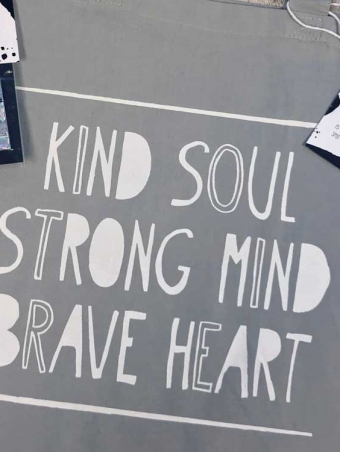 KIND SOUL
STRONG MIND
BRAVE HEART